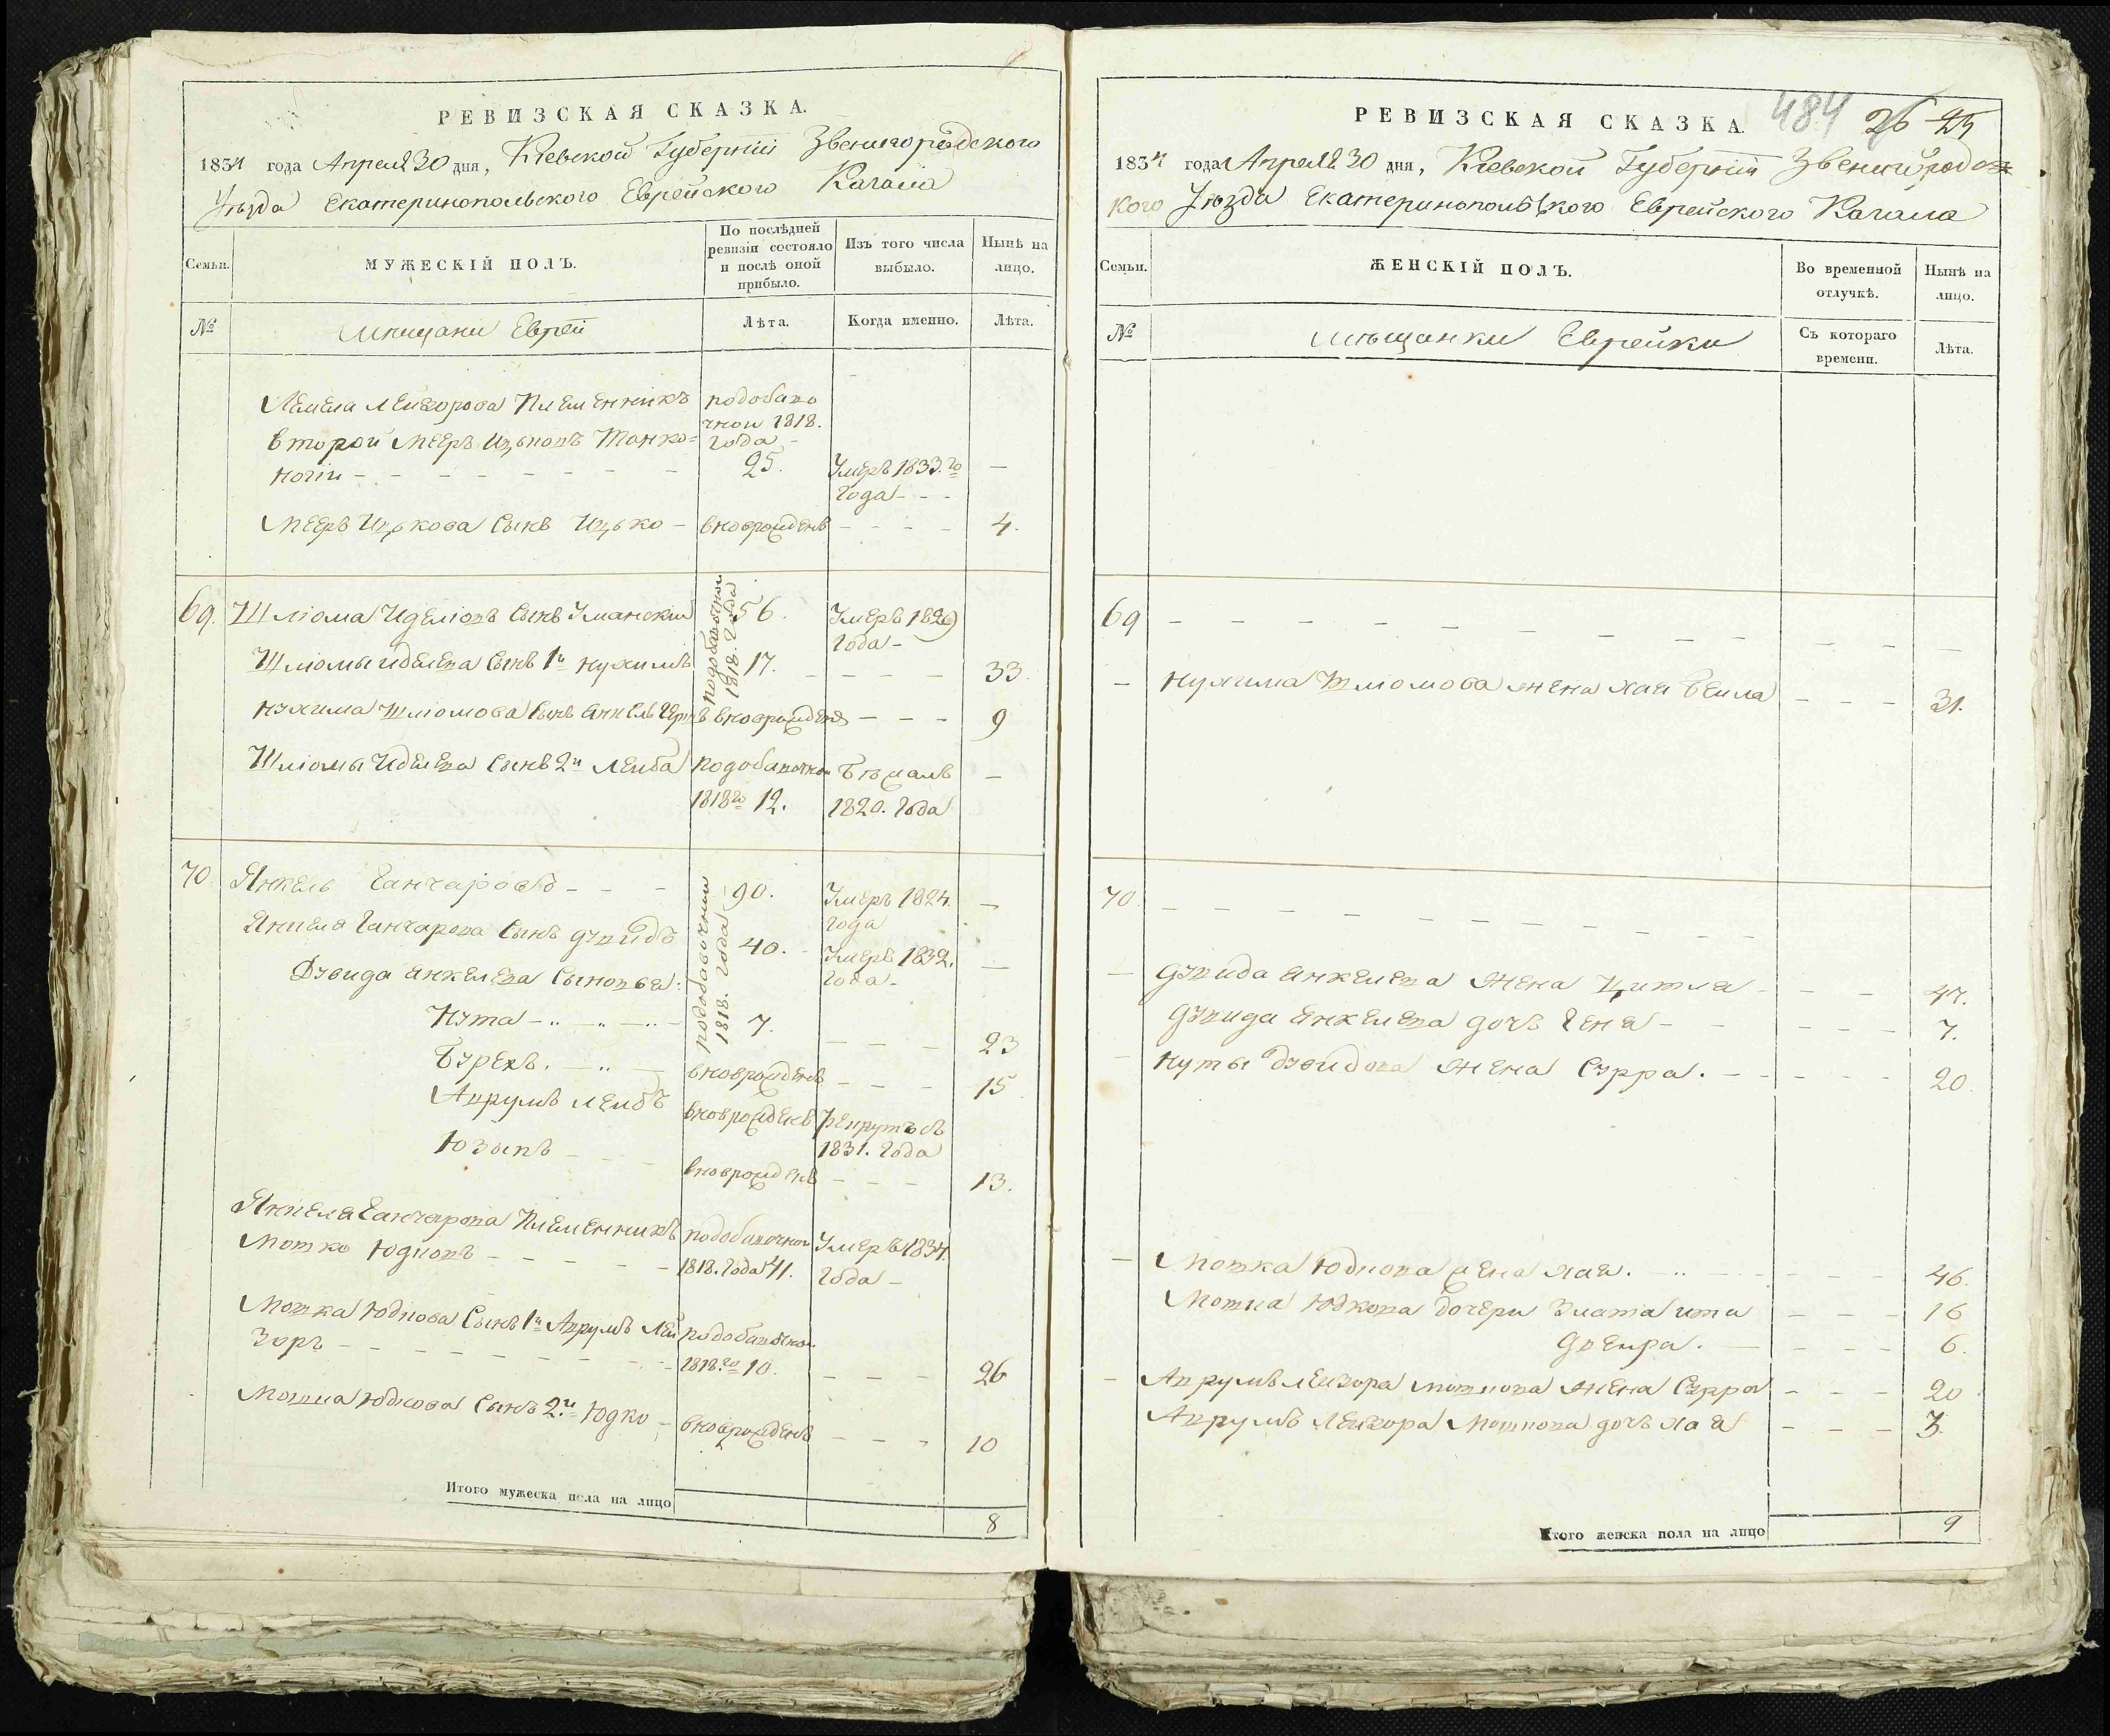 РЕВИЗСКАЯ СКАЗКА.
1834 года Апреля 30 дня, Киевской Губернiи Звенигородского
Уезда Екатеринопольского Еврейского Кагала
Семьи.
МУЖЕСКIЙ ПОЛЪ.
По послѣдней ревизiи состояло и послѣ оной прибыло.
Изъ того числа выбыло.
Нынѣ на лицо.
№
Мещани Евреи
Лѣта.
Когда именно.
Лѣта.
Лемела Лейзорова Племенникъ подобавочной 1818. года
второй Мееръ Ицьковъ Тонко=
ногiй 25. Умеръ 1833.го года
Мееръ Ицькова Сынъ Ицько вноврожденъ 4.
69. Шлiома Иделiовъ Сынъ Уманскiй подобавочной 1818. года 56. Умеръ 1829 года
Шлiомы Иделева Сынъ 1й Нухимъ 17. 33.
Нухима Шлiомова Сынъ вноврожденъ 9
Шлiомы Иделева Сынъ 2й Лейба подобавочной 1818го 12. Бежалъ 1820. Года
70. Янкель Ганчаровъ подобавочной 1818. года 90. Умеръ 1824. года
Янкеля Ганчарова Сынъ Дувидъ 40. Умеръ 1832. года
Дувида Янкелева Сыновья:
Нута 7. 23
Бурехъ. вноврожденъ 15
Аврумъ Лейбъ вноврожденъ 1831. Года
Юзыпъ вноврожденъ 13.
Янкеля Ганчарова Племенникъ подобавочной Умеръ 1834.
Мотко Юдковъ 1818. года 41. года
Мотка Юдкова Сынъ 1й Аврумъ Лей подобавочной
Зоръ 1818.го 10. 26
Мотка Юдкова Сынъ 2.й Юдко вноврожденъ 10
Итого мужеска пола на лицо 8
РЕВИЗСКАЯ СКАЗКА.
484 26 25
1834 года Апреля 30 дня, Киевской Губернiи Звенигородс
кого Уезда Екатеринопольского Еврейского Кагала
Семьи.
ЖЕНСКIЙ ПОЛЪ.
Во временной отлучкѣ.
Нынѣ на лицо.
№
Мещанки Еврейки
Съ котораго времени.
Лѣта.
69
Нухима Шлiомова жена Хая Бейла 31.
70.
Дувида Янкелева жена Цитля 47.
Дувида Янкелева дочь Геня 7.
Нуты Дувидова жена Сурра. 20.
Мотка Юдкова жена Хая. 46.
Мотка Юдкова дочери Злата Ита 16
Двейра. 6.
Аврумъ Лейзора Моткова жена Сурра 20
Аврумъ Лейзора Моткова дочь Хая 3.
Итого женска пола на лицо 9